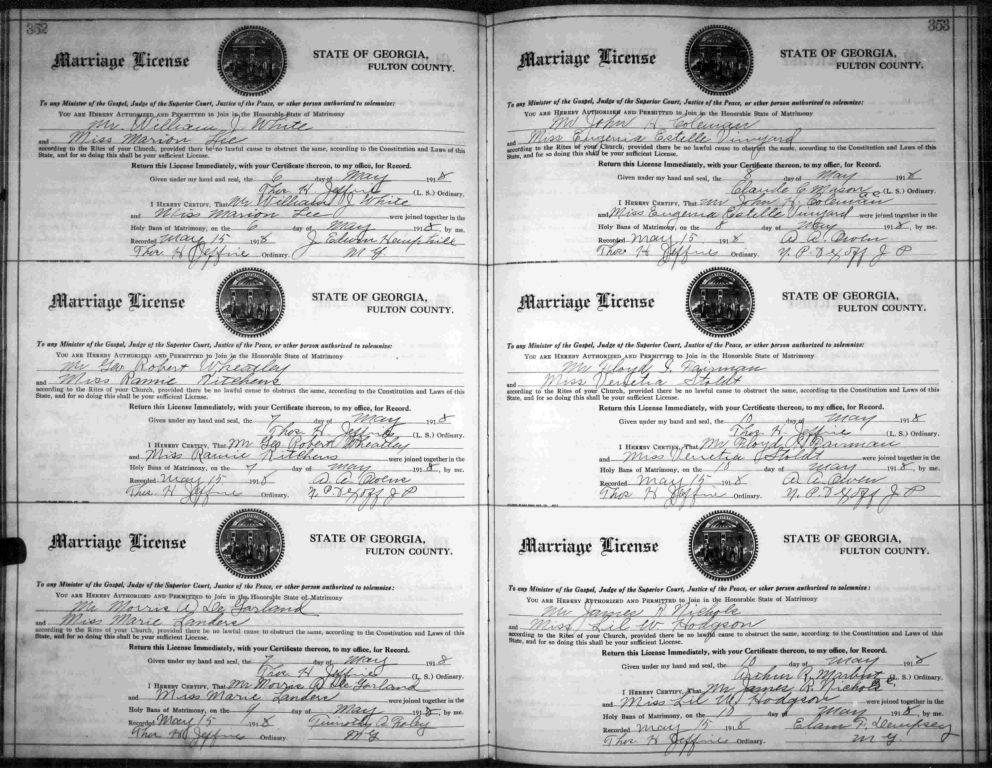 352
Marriage License
STATE OF GEORGIA,
FULTON COUNTY.
To any Minister of the Gospel, Judge of the Superior Court, Justice of the Peace, or other person authorized to solemnize:
YOU ARE HEREBY AUTHORIZED AND PERMITTED to Join in the Honorable State of Matrimony
Mr. William J. White
and Miss Marion Lee
according to the Rites of your Church, provided there be no lawful cause to obstruct the same, according to the Constitution and Laws of this
State, and for so doing this shall be your sufficient License.
Return this License Immediately, with your Certificate thereon, to my office, for Record.
Given under my hand and seal, the 6 day of May 1918
Thos. H. Jeffries (L. S.) Ordinary.
I HEREBY CERTIFY, That Mr William J. White
and Miss Marion Lee were joined together in the
Holy Bans of Matrimony, on the 6 day of May 1918, by me.
Recorded May 15 1918 J Edwin Hemphill
Thos H Jeffries Ordinary. M G
Marriage License
STATE OF GEORGIA,
FULTON COUNTY.
To any Minister of the Gospel, Judge of the Superior Court, Justice of the Peace, or other person authorized to solemnize:
YOU ARE HEREBY AUTHORIZED AND PERMITTED to Join in the Honorable State of Matrimony
Mr Geo Robert Wheatley
and Miss Rannie Kitchens
according to the Rites of your Church, provided there be no lawful cause to obstruct the same, according to the Constitution and Laws of this
State, and for so doing this shall be your sufficient License.
Return this License Immediately, with your Certificate thereon, to my office, for Record.
Given under my hand and seal, the 7 day of May 1918
Thos H Jeffries (L. S.) Ordinary.
I HEREBY CERTIFY, That Mr Geo Robert Wheatley
and Miss Rannie Kitchens were joined together in the
Holy Bans of Matrimony, on the 7 day of May 1918, by me.
Recorded May 15 1918
Thos H Jeffries Ordinary. N. P & Ex off J P
Marriage License
STATE OF GEORGIA,
FULTON COUNTY.
To any Minister of the Gospel, Judge of the Superior Court, Justice of the Peace, or other person authorized to solemnize:
YOU ARE HEREBY AUTHORIZED AND PERMITTED to Join in the Honorable State of Matrimony
Mr Morris A De Garland
and Miss Marie Landers
according to the Rites of your Church, provided there be no lawful cause to obstruct the same, according to the Constitution and Laws of this
State, and for so doing this shall be your sufficient License.
Return this License Immediately, with your Certificate thereon, to my office, for Record.
Given under my hand and seal, the 7 day of May 1918
Thos H Jeffries (L. S.) Ordinary.
I HEREBY CERTIFY, That Mr Morris A De Garland
and Miss Marie Landers were joined together in the
Holy Bans of Matrimony, on the 9 day of May 1918, by me.
Recorded May 15 1918 Timothy A
Thos H Jeffries Ordinary. M G
353
Marriage License
STATE OF GEORGIA,
FULTON COUNTY.
To any Minister of the Gospel, Judge of the Superior Court, Justice of the Peace, or other person authorized to solemnize:
YOU ARE HEREBY AUTHORIZED AND PERMITTED to Join in the Honorable State of Matrimony
Mr John H Coleman
and Miss Eugenia Estelle Vineyard
according to the Rites of your Church, provided there be no lawful cause to obstruct the same, according to the Constitution and Laws of this
State, and for so doing this shall be your sufficient License.
Return this License Immediately, with your Certificate thereon, to my office, for Record.
Given under my hand and seal, the 8 day of May 1918
Claude C Mason (L. S.) Ordinary.
I HEREBY CERTIFY, That Mr John H. Coleman
and Miss Eugenia Estelle Vineyard were joined together in the
Holy Bans of Matrimony, on the 8 day of May 1918, by me.
Recorded May 15 1918 A A Owen
Thos H Jeffries Ordinary. N. P & Ex off J P
Marriage License
STATE OF GEORGIA,
FULTON COUNTY.
To any Minister of the Gospel, Judge of the Superior Court, Justice of the Peace, or other person authorized to solemnize:
YOU ARE HEREBY AUTHORIZED AND PERMITTED to Join in the Honorable State of Matrimony
Mr Floyd Fairman
and Miss Venetia Stoldt
according to the Rites of your Church, provided there be no lawful cause to obstruct the same, according to the Constitution and Laws of this
State, and for so doing this shall be your sufficient License.
Return this License Immediately, with your Certificate thereon, to my office, for Record.
Given under my hand and seal, the 10 day of May 1918
Thos H Jeffries (L. S.) Ordinary.
I HEREBY CERTIFY, That Mr Floyd Fairman
and Miss Venetia Stoldt were joined together in the
Holy Bans of Matrimony, on the 10 day of May 1918, by me.
Recorded May 15 1918 A A Owen
Thos H Jeffries Ordinary. N. P & Ex off J P
Marriage License
STATE OF GEORGIA,
FULTON COUNTY.
To any Minister of the Gospel, Judge of the Superior Court, Justice of the Peace, or other person authorized to solemnize:
YOU ARE HEREBY AUTHORIZED AND PERMITTED to Join in the Honorable State of Matrimony
Mr James R Nichols
and Miss Lil W Hodgson
according to the Rites of your Church, provided there be no lawful cause to obstruct the same, according to the Constitution and Laws of this
State, and for so doing this shall be your sufficient License.
Return this License Immediately, with your Certificate thereon, to my office, for Record.
Given under my hand and seal, the 10 day of May 1918
Arthur R. Marbut (L. S.) Ordinary.
I HEREBY CERTIFY, That Mr James R. Nichols
and Miss Lil W Hodgson were joined together in the
Holy Bans of Matrimony, on the day of May 1918, by me.
Recorded May 15 1918 Elam F. Dempsey
Thos H Jeffries Ordinary. M G